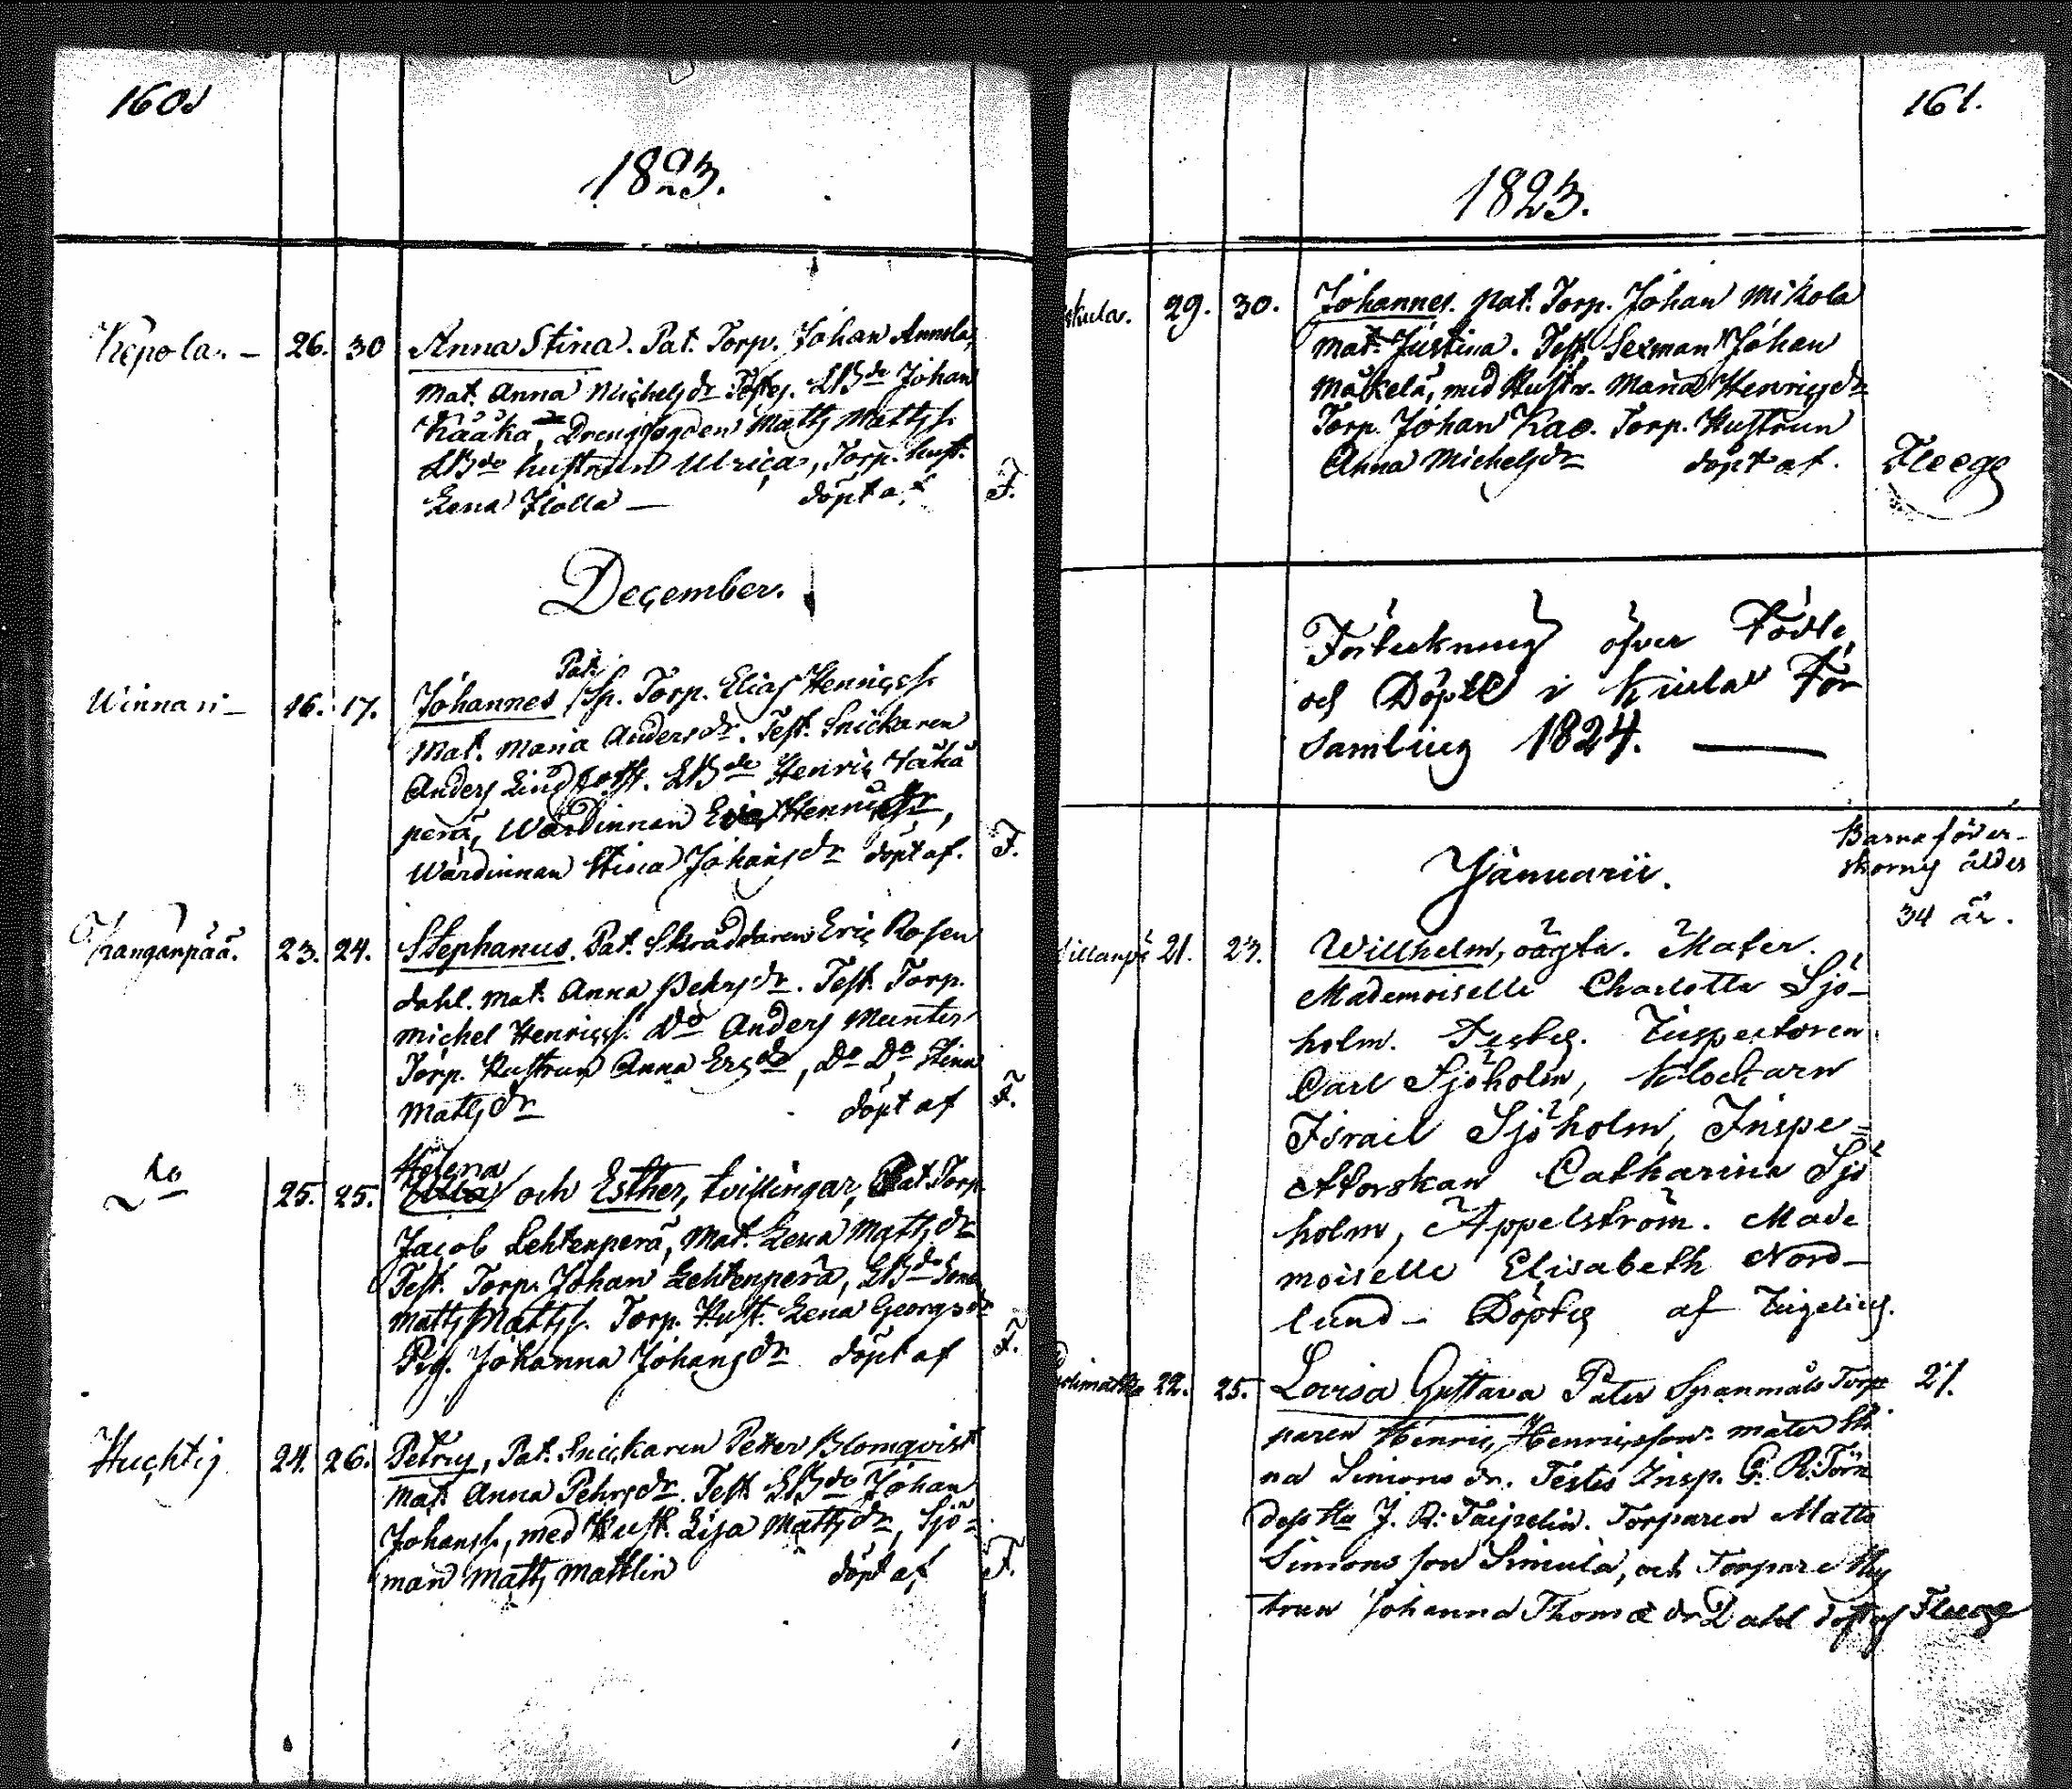 160
1823.
Kepola. – 26. 30 Anna Stina. Pat. Torp. Johan Annola,
Mat. Anna Michelsdr Testes. LBde Johan
Kääkä, Drengfogden Matts Mattss.
LBde hustrun Ulrica, Torp. hust.
Lena Flolla — döpt af F.
December.
Pat.
Winnari – 16. 17. Johannes, Sp. Torp. Elias Henricss.
Mat. Maria Andersdr. Test. Snickaren
Anders LBde Henric
perä, Wärdinnan
Wärdinnan Stina Johansdr döpt af. F.
Kanganpää. 23. 24. Stephanus. Pat. Skräddaren Eric Rosen
dahl. Mat. Anna Pehrsdr. Test. Torp.
Michel Henricss. Do Anders Munter
Torp. Hustrun Anna Ericsdr, Do Do Stina
Mattsdr döpt af F.
Helena
Do 25. 25. Ulla och Esther, tvillingar, Pat. Torp.
Jacob Lehtenperä, Mat. Lena Mattsdr
Test. Torp. Johan Lehtenperä, LBde
Matts Mattss. Torp. Hust. Lena Georgsdr
Pig. Johanna Johansdr döpt af F.
Huchtis 24. 26. Petrus, Pat. Snickaren Petter Blomqvist
Mat. Anna Pehrsdr. Test. LBde Johan
Johanss., med Hust. Lisa Mattsdr, Sjö=
man Matts Mattlin döpt af F.
161.
1823.
skula. 29. 30. Johannes. Pat. Torp. Johan Mikola
Mat. Justina. Test. Sexman Johan
Mäkelä, med Hustr. Maria Henricsdr
Torp. Johan Kao. Torp. Hustrun
Anna Michelsdr döpt af. Fleege
Förteckning öfver Födde
och Döpte i Kiula För
samling 1824. —
Barnaföder–
skorns ålder
34 år.
Januarii.
21. 23. Willhelm, oägta. Mater.
Mademoiselle Charlotta Sjö–
holm. Testes. Inspectoren
Carl Sjöholm, Klockarn
Israel Sjöholm, Inspe=
ctorskan Catharina Sjö
holm, Appelström. Made
moiselle Elisabeth Nord–
lund – Döptes af Ingelius.
22. 25. Lovisa Gustava Pater Spanmåls Torp 27.
paren Henric Henricsson. mater Sti
na Simons dr. Testes Insp. G. R. Törn
J. R. Taipelin. Torparen Matts
Simons son Simula, och Torpare Hus
trun Johanna Thomæ dr Dahl döpt af Fleege